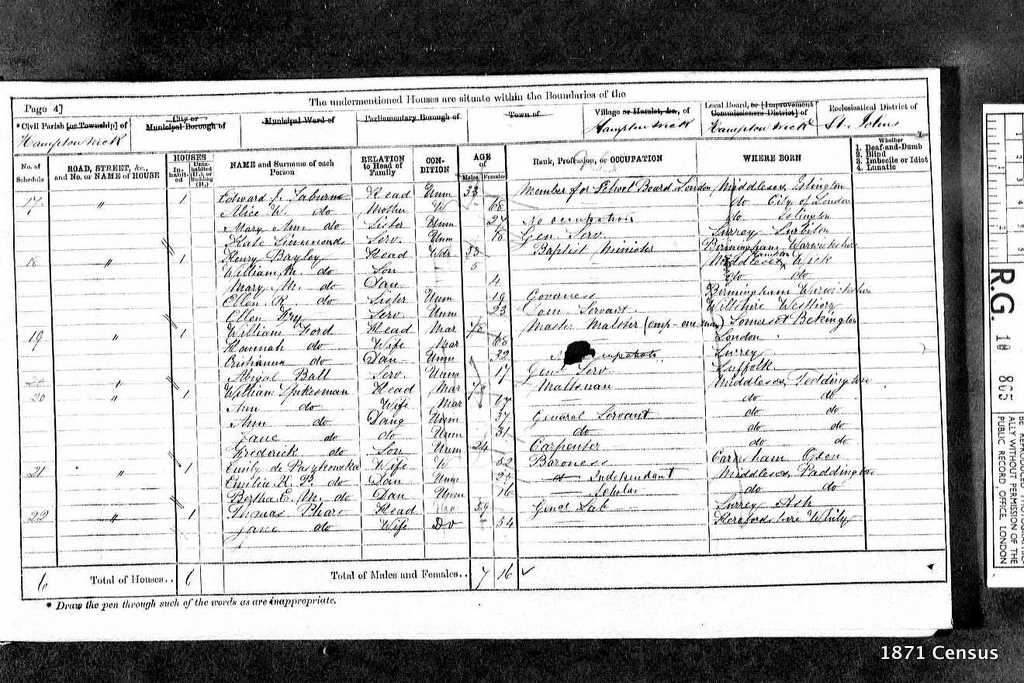 The undermentioned Houses are situate within the Boundaries of the
Page 47
*Civil Parish [or Township] of
Hampton Wick
City or Municipal Borough of
Municipal Ward of
Parliamentary Borough of
Town of
Village or Hamlet, &c., of
Hampton Wick
Local Board, or [Improvement Commissioners District] of
Hampton Wick
Ecclesiastical District of
St. Johns
No. of Schedule
ROAD, STREET, &c., and No. or NAME of HOUSE
HOUSES
Inhabited
Uninhabited (U.), or Building (B.)
NAME and Surname of each Person
RELATION to Head of Family
CONDITION
AGE of
Males
Females
Rank, Profession, or OCCUPATION
WHERE BORN
Whether
1. Deaf-and-Dumb
2. Blind
3. Imbecile or Idiot
4. Lunatic
17 " 1 Edward J. Head Unm 33 Member for School Board London Middlesex Islington
Alice W. do Mother W 68 do City of London
Mary Ann do Sister Unm 24 No occupation do Islington
Kate Serv. Unm 18 Gen. Serv. Surrey Surbiton
18 " 1 Henry Bayley Head Baptist Minister Birmingham Warwickshire
William do Son 5 Middlesex Hampton Wick
Mary M. do Dau 4 do do
Ellen R. do Sister Unm 19 Governess Birmingham Warwickshire
Ellen Fry Serv. Unm 23 Servant Wiltshire
19 " 1 William Ford Head Mar Master Somerset
Hannah do Wife Mar 68 London
do Dau Unm 32 Surrey
Abigal Ball Serv. Unm 17 Genl Serv Suffolk
20 " 1 William Head Mar Maltsman Middlesex Teddington
Ann do Wife Mar 67 do do
Ann do Daug Unm 37 General Servant do do
Jane do do Unm 31 do do do
Frederick do Son Unm 24 Carpenter do do
21 " 1 Emily de Wife W 62 Baroness Oxon
Emilie do Dau Unm Independant Middlesex Paddington
Bertha E. M. do Dau Unm 16 Scholar do do
22 " 1 Thomas Head 59 Genl Lab Surrey Ash
Jane do Wife Do 54 Herefordshire
6 Total of Houses.. 6 Total of Males and Females.. 7 16
* Draw the pen through such of the words as are inappropriate.
R.G. 10 865
ALLY WITHOUT PERMISSION OF THE
PUBLIC RECORD OFFICE, LONDON
1871 Census